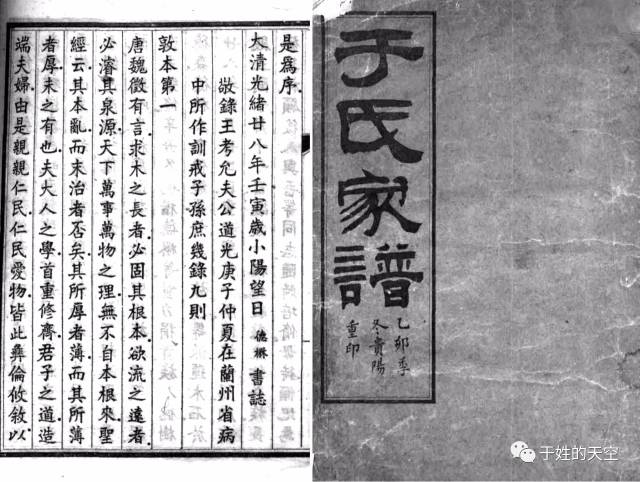 是爲序
大清光緒廿八年壬寅歲小陽望日 書誌
敬錄王考允夫公道光庚子仲夏在蘭州省病
中所作訓戒子孫庶幾錄九則
敦本第一
唐魏徵有言求木之長者必固其根本欲流之遠者
必濬其泉源天下萬事萬物之理無不自本根來聖
經云其本亂而末治者否矣其所厚者薄而其所薄
者厚未之有也夫大人之學首重修齊君子之道造
端夫婦由是親親仁民仁民愛物皆此彝倫攸敘以
于氏家譜
乙卯季
冬貴陽
重印
于姓的天空